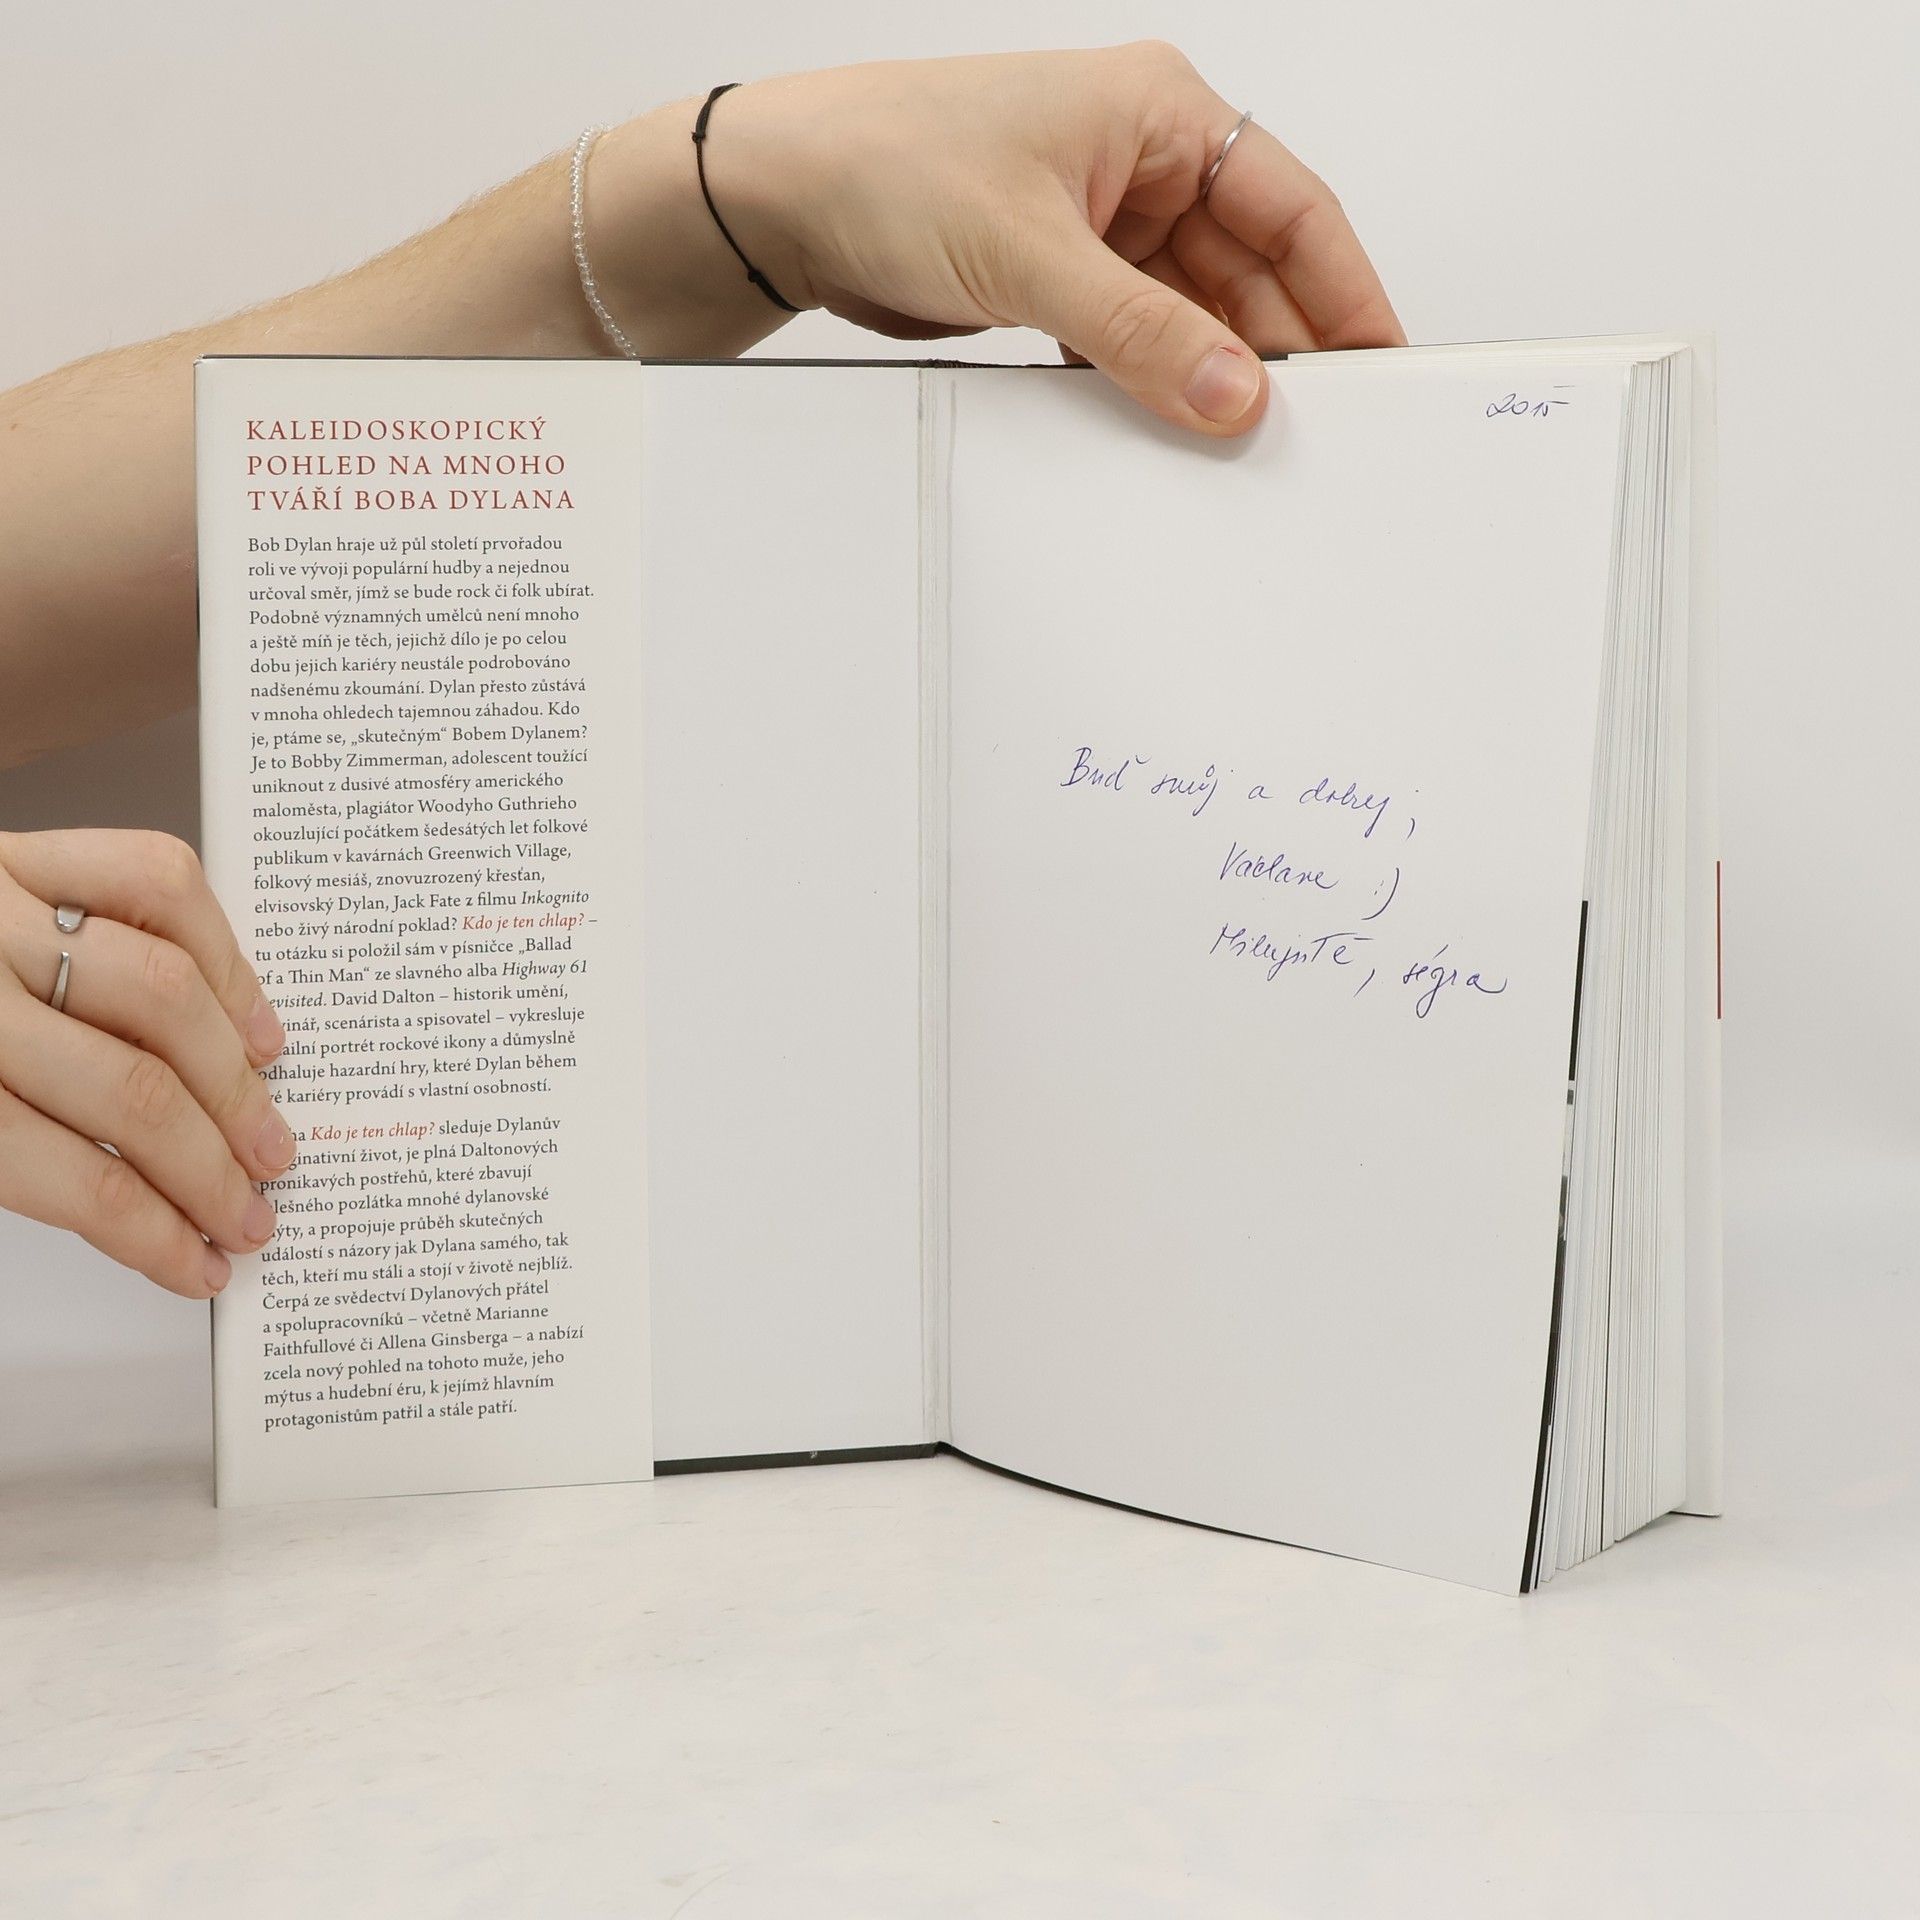 KALEIDOSKOPICKÝ
POHLED NA MNOHO
TVÁŘÍ BOBA DYLANA
Bob Dylan hraje už půl století prvořadou
roli ve vývoji populární hudby a nejednou
určoval směr, jímž se bude rock či folk ubírat.
Podobně významných umělců není mnoho
a ještě míň je těch, jejichž dílo je po celou
dobu jejich kariéry neustále podrobováno
nadšenému zkoumání. Dylan přesto zůstává
v mnoha ohledech tajemnou záhadou. Kdo
je, ptáme se, „skutečným“ Bobem Dylanem?
Je to Bobby Zimmerman, adolescent toužící
uniknout z dusivé atmosféry amerického
maloměsta, plagiátor Woodyho Guthrieho
okouzlující počátkem šedesátých let folkové
publikum v kavárnách Greenwich Village,
folkový mesiáš, znovuzrozený křesťan,
elvisovský Dylan, Jack Fate z filmu Inkognito
nebo živý národní poklad? Kdo je ten chlap? –
tu otázku si položil sám v písničce „Ballad
of a Thin Man“ ze slavného alba Highway 61
evisited. David Dalton – historik umění,
vinář, scenárista a spisovatel – vykresluje
ailní portrét rockové ikony a důmyslně
odhaluje hazardní hry, které Dylan během
vé kariéry provádí s vlastní osobností.
ha Kdo je ten chlap? sleduje Dylanův
ginativní život, je plná Daltonových
pronikavých postřehů, které zbavují
lešného pozlátka mnohé dylanovské
ýty, a propojuje průběh skutečných
událostí s názory jak Dylana samého, tak
těch, kteří mu stáli a stojí v životě nejblíž.
Čerpá ze svědectví Dylanových přátel
a spolupracovníků – včetně Marianne
Faithfullové či Allena Ginsberga – a nabízí
zcela nový pohled na tohoto muže, jeho
mýtus a hudební éru, k jejímž hlavním
protagonistům patřil a stále patří.
2015
Buď svůj a dobrej,
Václave :)
Miluju Tě, ségra